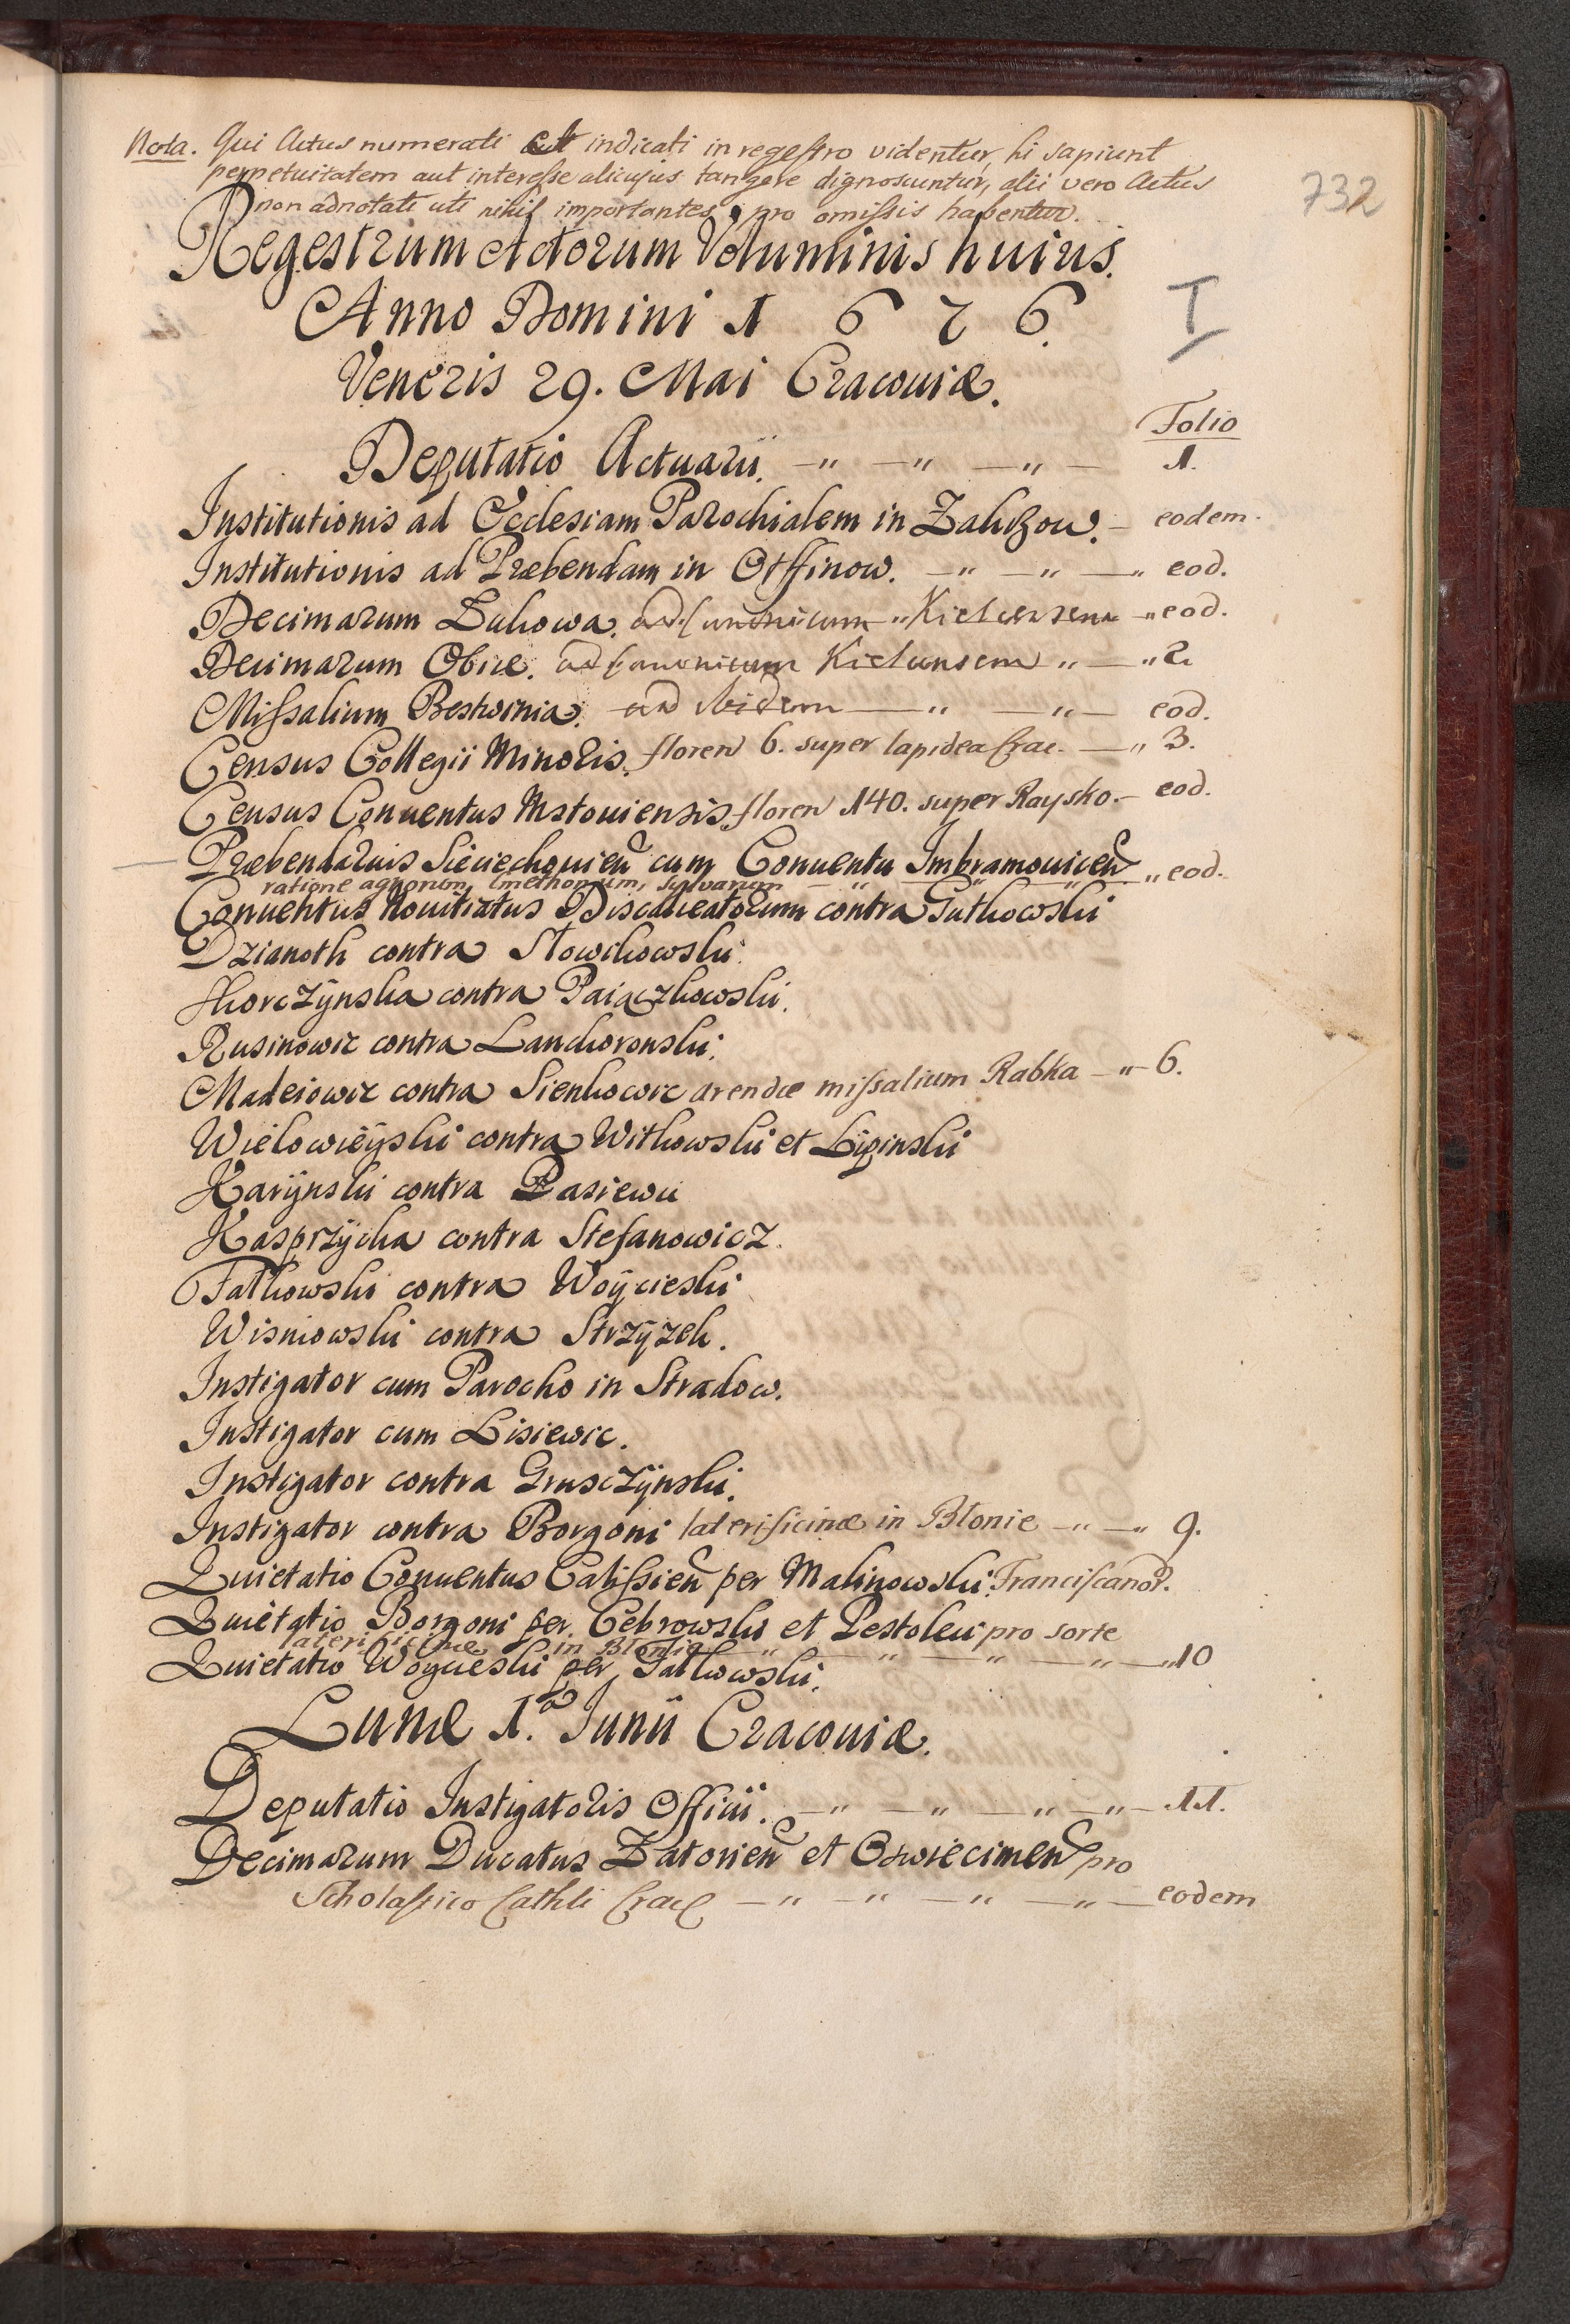 Nota. Qui Actus numerati et indicati in regestro videntur, hi sapiunt
perpetuitatem aut interesse alicujus tangere dignoscuntur, alii vero Actus
non adnotati uti nihil importantes, pro omissis habentur.
732
Regestrum Actorum Voluminis huius.
Anno Domini 1 6 7 6.
I
Veneris 29. Mai Cracouiæ.
Folio
Deputatio Actuarii. 1.
Institutionis ad Ecclesiam Parochialem in eodem.
Institutionis ad Præbendam in Otffinow. eod.
Decimarum Lukowa. ad Canonicum eod.
Decimarum Obice. ad Canonicum 2
Missalium ad ibidem eod.
Census Collegii Minoris. floren 6. super lapidea Crac. 3.
Census Conuentus Mstouiensis floren 140. super Raysko. eod.
Præbendarius Sieciechouien cum Conuentu Imbramouicen eod.
ratione agrorum, Cmethonum, syluarum
Conuentus Nouitiatus Discalceatorum contra Gutkowski
Dzianoth contra Stowikowski.
Skorczÿnska contra Paiączkowski.
Rusinowic contra Lanckoronski.
Madeiowic contra Sienkowic arendæ missalium Rabka 6.
Wielowieÿski contra Witkowski et Lipinski
Karÿnski contra Pasiewic
Kasprzÿcka contra Stefanowicz.
Fatkowski contra Woÿcieski
Wisniowski contra Strzÿzek.
Instigator cum Parocho in Stradow.
Instigator cum Lisiewic.
Instigator contra Grusczÿnski.
Instigator contra Borgoni laterificinæ in Blonie 9.
Quietatio Conuentus Calissien per Malinowski. Franciscanor.
Quietatio Borgoni per Cebrowski et Pestoleci pro sorte
laterificinæ in Blonie 10
Quietatio Woycieski per Fatkowski.
Lunæ 1.a Junii Cracouiæ.
Deputatio Instigatoris Officii. 11.
Decimarum Ducatus Zatorien et Oswiecimen pro
Scholastico Cathli Crac eodem